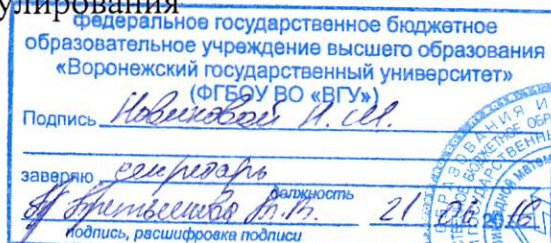 улирования
федеральное государственное бюджетное
образовательное учреждение высшего образования
«Воронежский государственный университет»
(ФГБОУ ВО «ВГУ»)
Подпись Новиковой Н.М.
заверяю секретарь
должность
21 20
подпись, расшифровка подписи